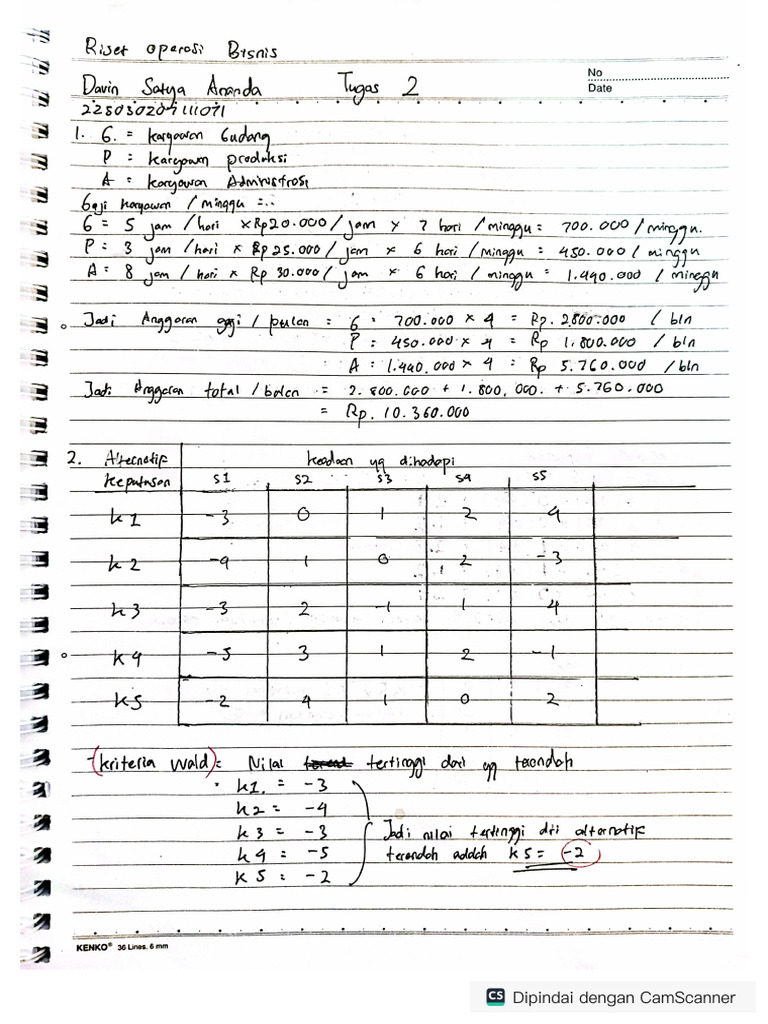 Riset operasi Bisnis
Davin Satya Ananda Tugas 2
No
Date
225030209111071
1. G. = karyawan Gudang
P = karyawan produksi
A = karyawan Administrasi
Gaji karyawan / minggu =..
G = 5 jam / hari x Rp 20.000 / jam x 7 hari / minggu = 700.000 / minggu.
P = 3 jam / hari x Rp 25.000 / jam x 6 hari / minggu = 450.000 / minggu
A = 8 jam / hari x Rp 30.000 / jam x 6 hari / minggu = 1.440.000 / minggu
Jadi Anggaran gaji / bulan = G = 700.000 x 4 = Rp. 2.800.000 / bln
P = 450.000 x 4 = Rp 1.800.000 / bln
A = 1.440.000 x 4 = Rp 5.760.000 / bln
Jadi Anggaran total / bulan = 2.800.000 + 1.800.000. + 5.760.000
= Rp. 10.360.000
2. Alternatif keadaan yg dihadapi
keputusan S1 S2 S3 S4 S5
k1 -3 0 1 2 4
k2 -4 1 0 2 -3
k3 -3 2 -1 1 4
k4 -5 3 1 2 -1
k5 -2 4 1 0 2
- (kriteria Wald) = Nilai tertinggi dari yg terendah
k1. = -3
k2 = -4
k3 = -3 Jadi nilai tertinggi dri alternatif
k4 = -5 terendah adalah k5 = -2
k5 = -2
KENKO® 36 Lines. 6 mm
CS Dipindai dengan CamScanner